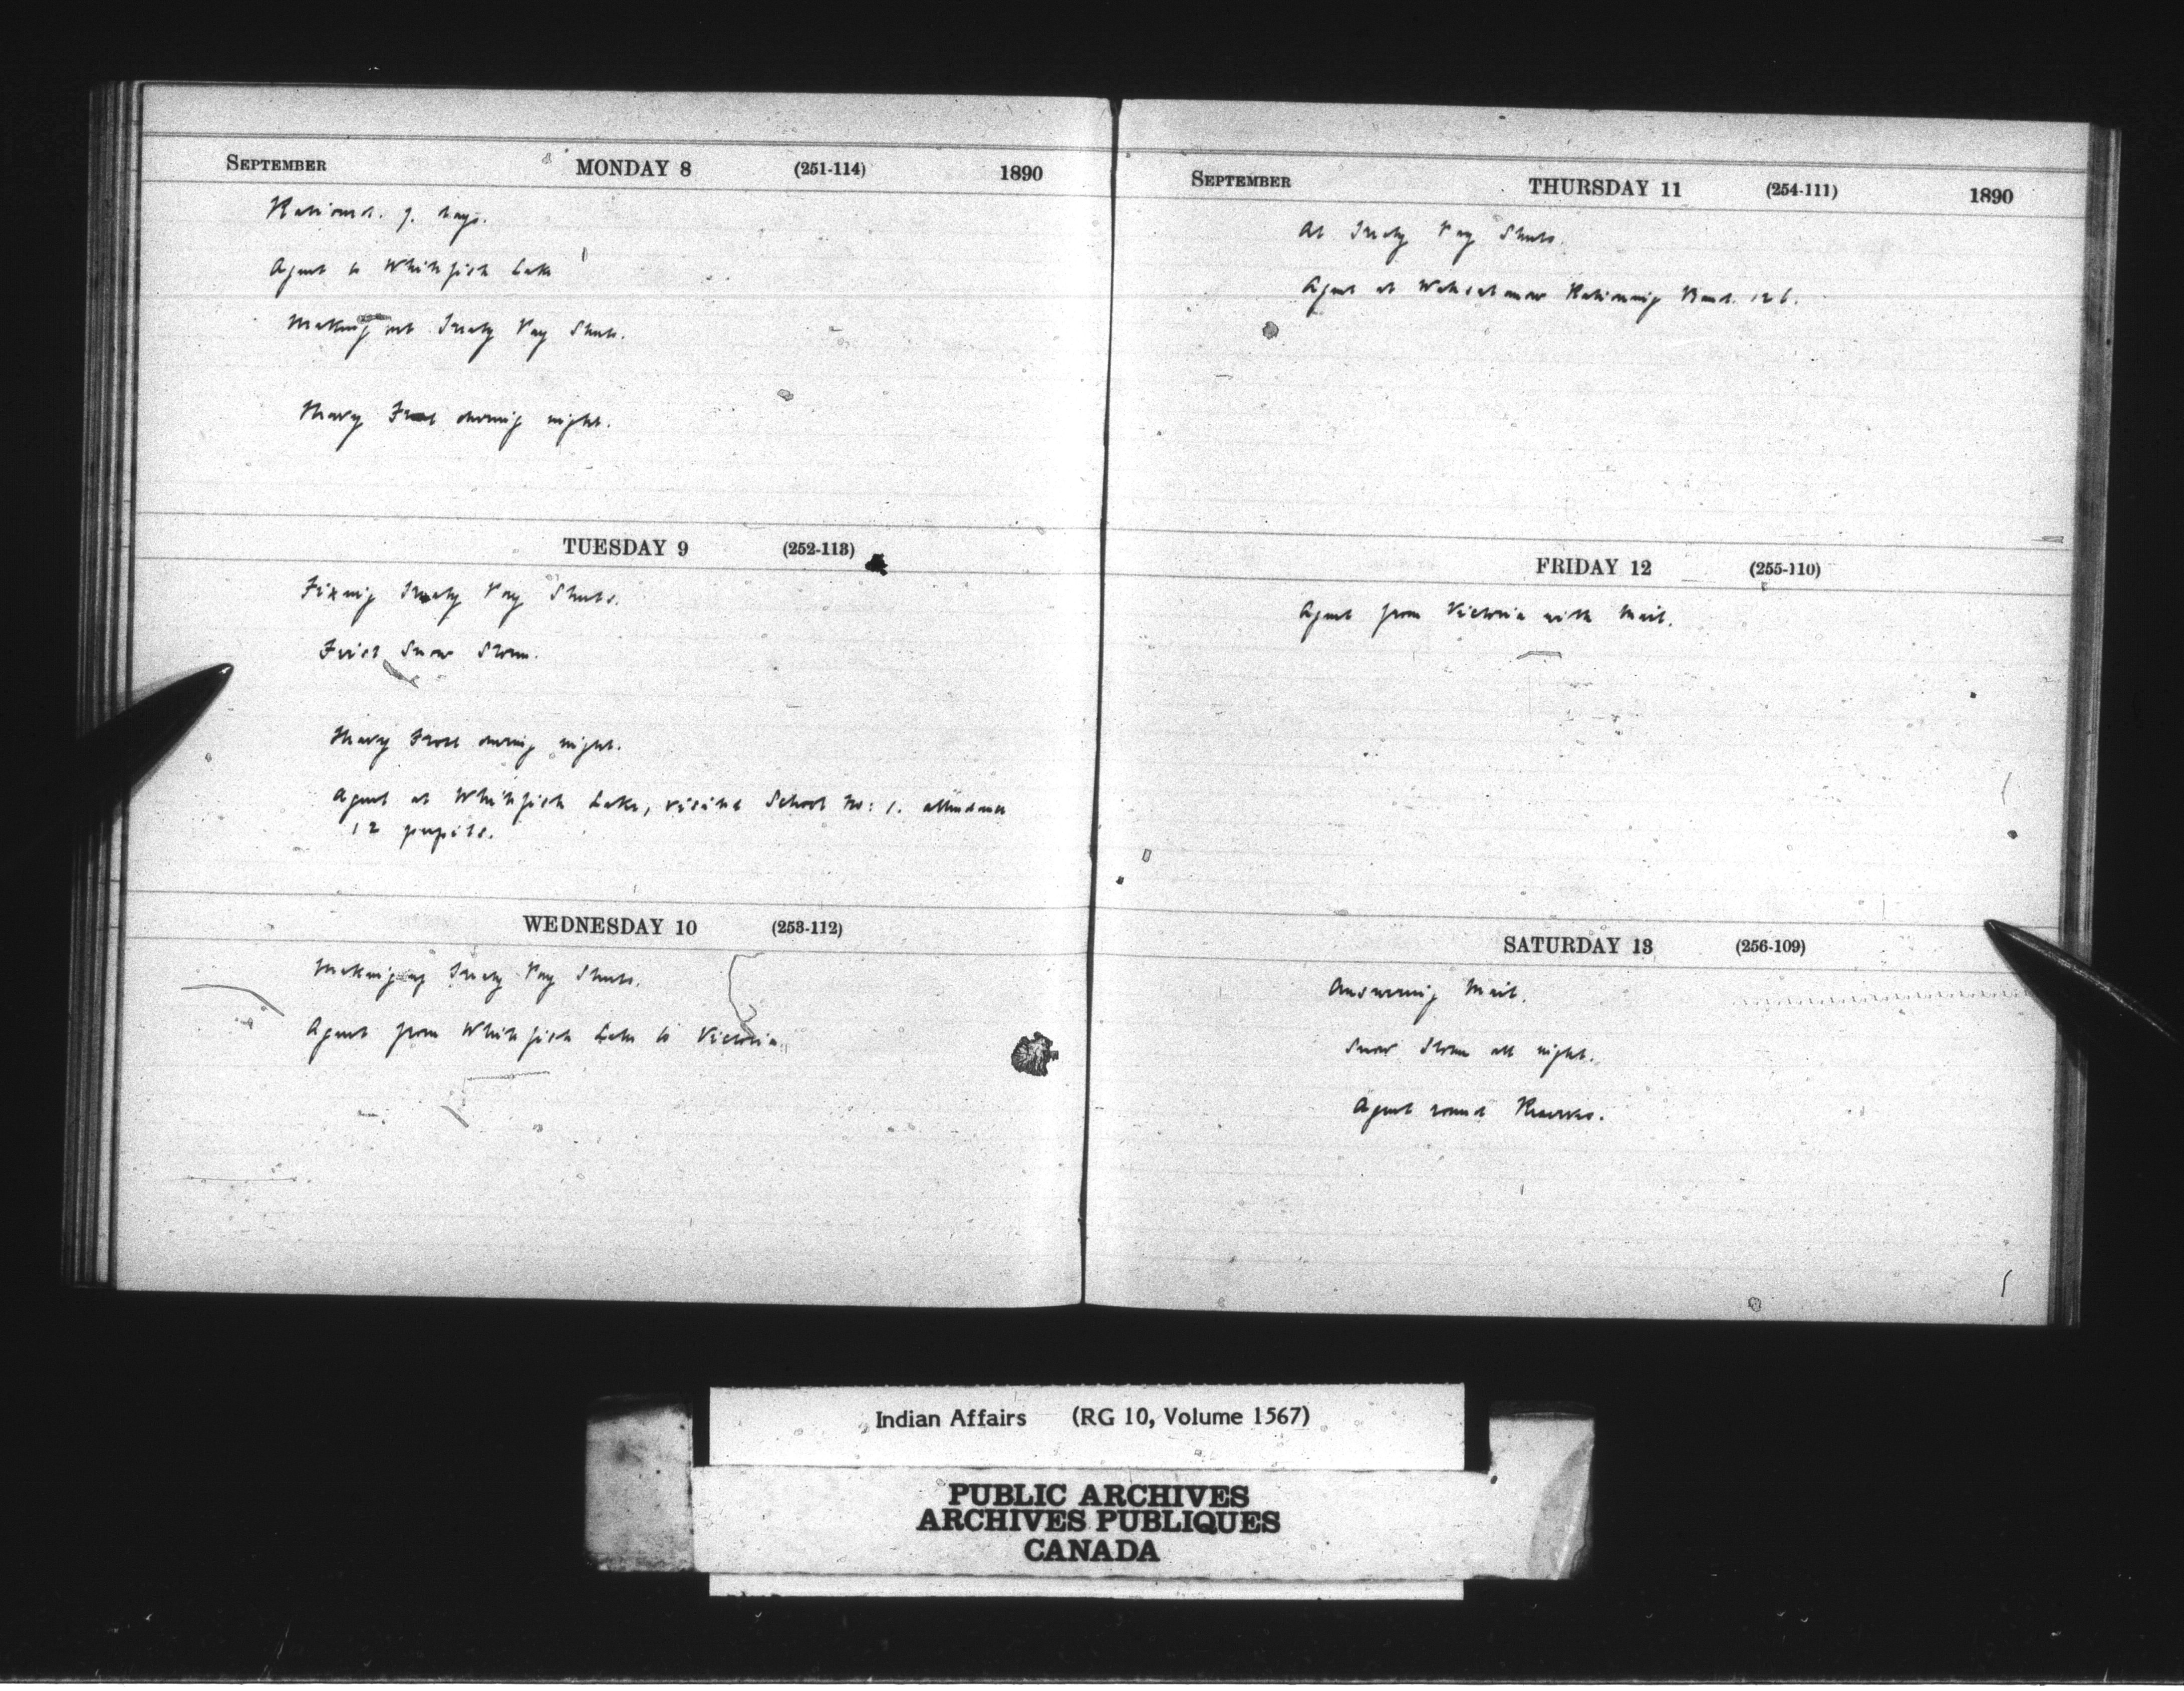 SEPTEMBER MONDAY 8 (251-114) 1890
Rationed. 7. days.
Agent to Whitefish Lake
Making out Treaty Pay Sheets.
Heavy Frost during night.
TUESDAY 9 (252-113)
Fixing Treaty Pay Sheets.
First Snow Storm.
Heavy Frost during night.
Agent at Whitefish Lake, visited School No: 1. attendance
12 pupils.
WEDNESDAY 10 (253-112)
Making up Treaty Pay Sheets.
Agent from Whitefish Lake to Victoria.
SEPTEMBER THURSDAY 11 (254-111) 1890
At Treaty Pay Sheets.
Agent at Wahsatanow Rationing Band. 126.
FRIDAY 12 (255-110)
Agent from Victoria with Mail.
SATURDAY 13 (256-109)
Answering Mail.
Snow Storm all night.
Agent round Reserves.
Indian Affairs (RG 10, Volume 1567)
PUBLIC ARCHIVES
ARCHIVES PUBLIQUES
CANADA